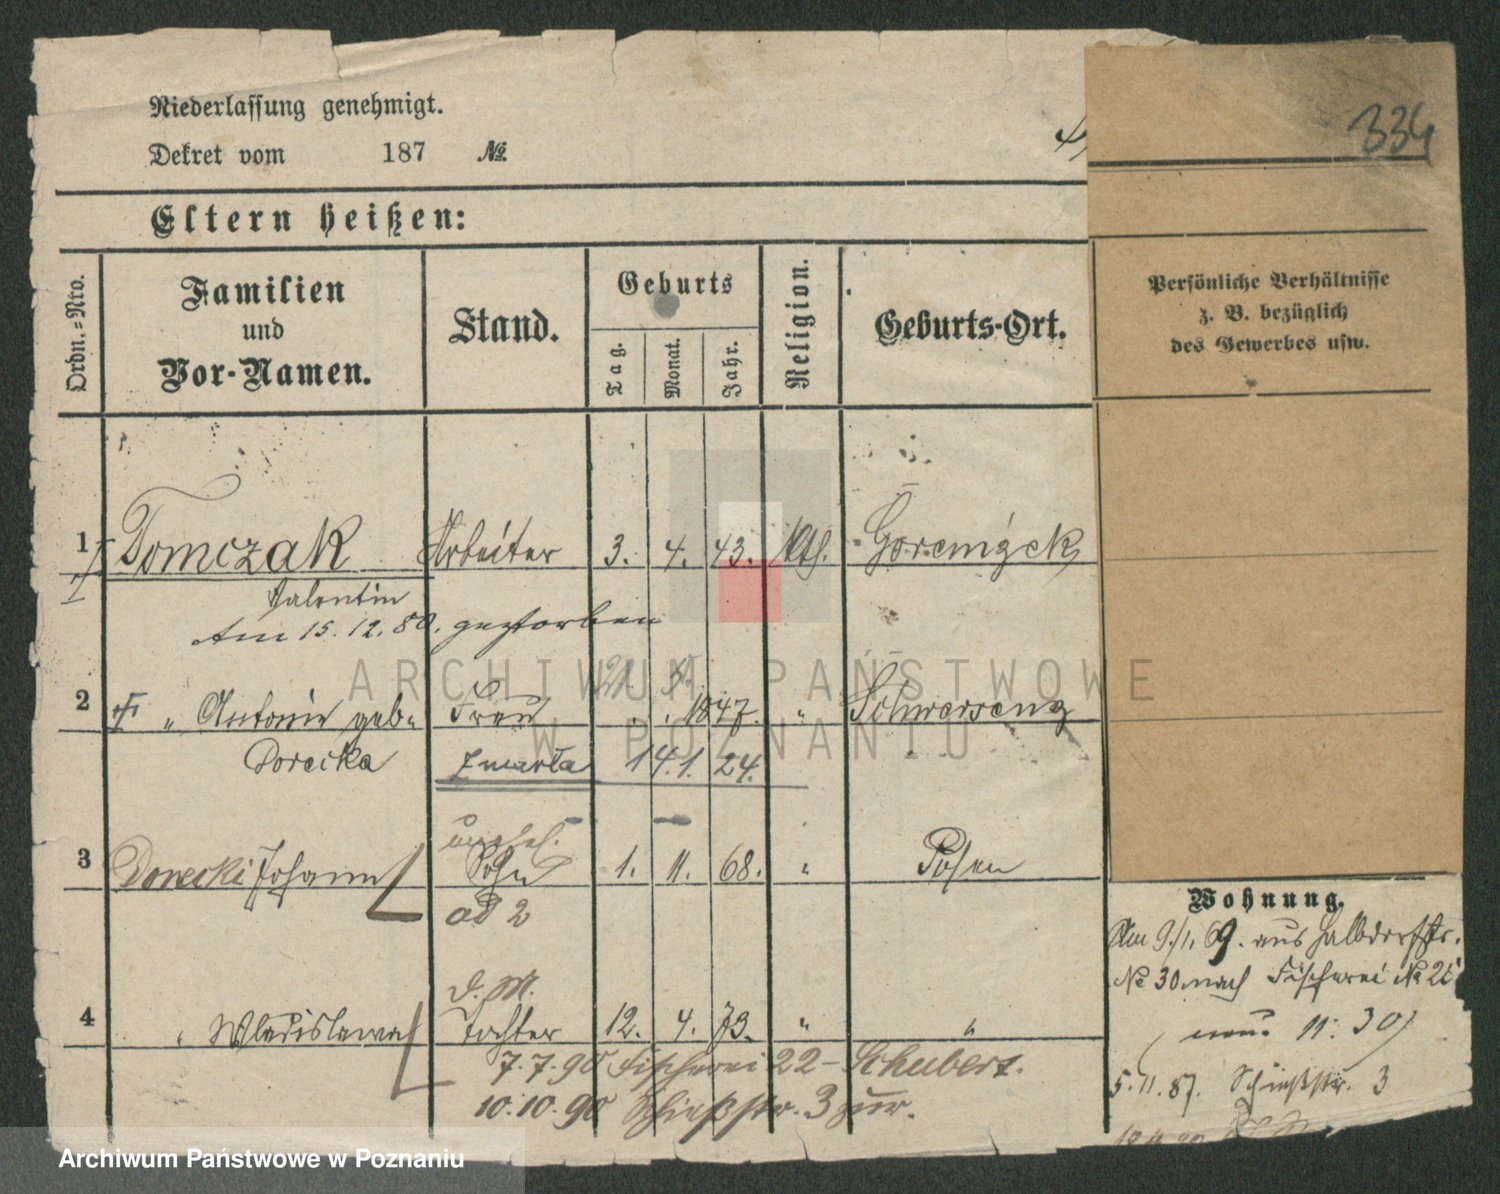 334
Niederlassung genehmigt.
Dekret vom 187 №
Eltern heißen:
Ordn.=Nro.
Familien
und
Vor-Namen.
Stand.
Geburts
Tag.
Monat.
Jahr.
Religion.
Geburts-Ort.
Persönliche Verhältnisse
z. B. bezüglich
des Gewerbes usw.
1 Tomczak Arbeiter 3. 4. 43. kth.
Valentin
Am 15.12.80. gestorben
21
2 " Antonie geb. Frau 1847. " Schwersenz
Dorecka zmarła 14.1.24.
unehel.
3 Dorecki Johann Sohn 1. 11. 68. " Posen
ad 2
4 " Wladislawa Tochter 12. 4. 73. " "
7.7.90 Fischerei 22 - Schubert.
10.10.90 Schießstr. 3 zur.
Wohnung.
Am 9./1. 69. aus Halbdorfstr.
№ 30 nach Fischerei №
11. 30)
5.11.87. Schießstr. 3
ARCHIWUM PAŃSTWOWE
W POZNANIU
Archiwum Państwowe w Poznaniu